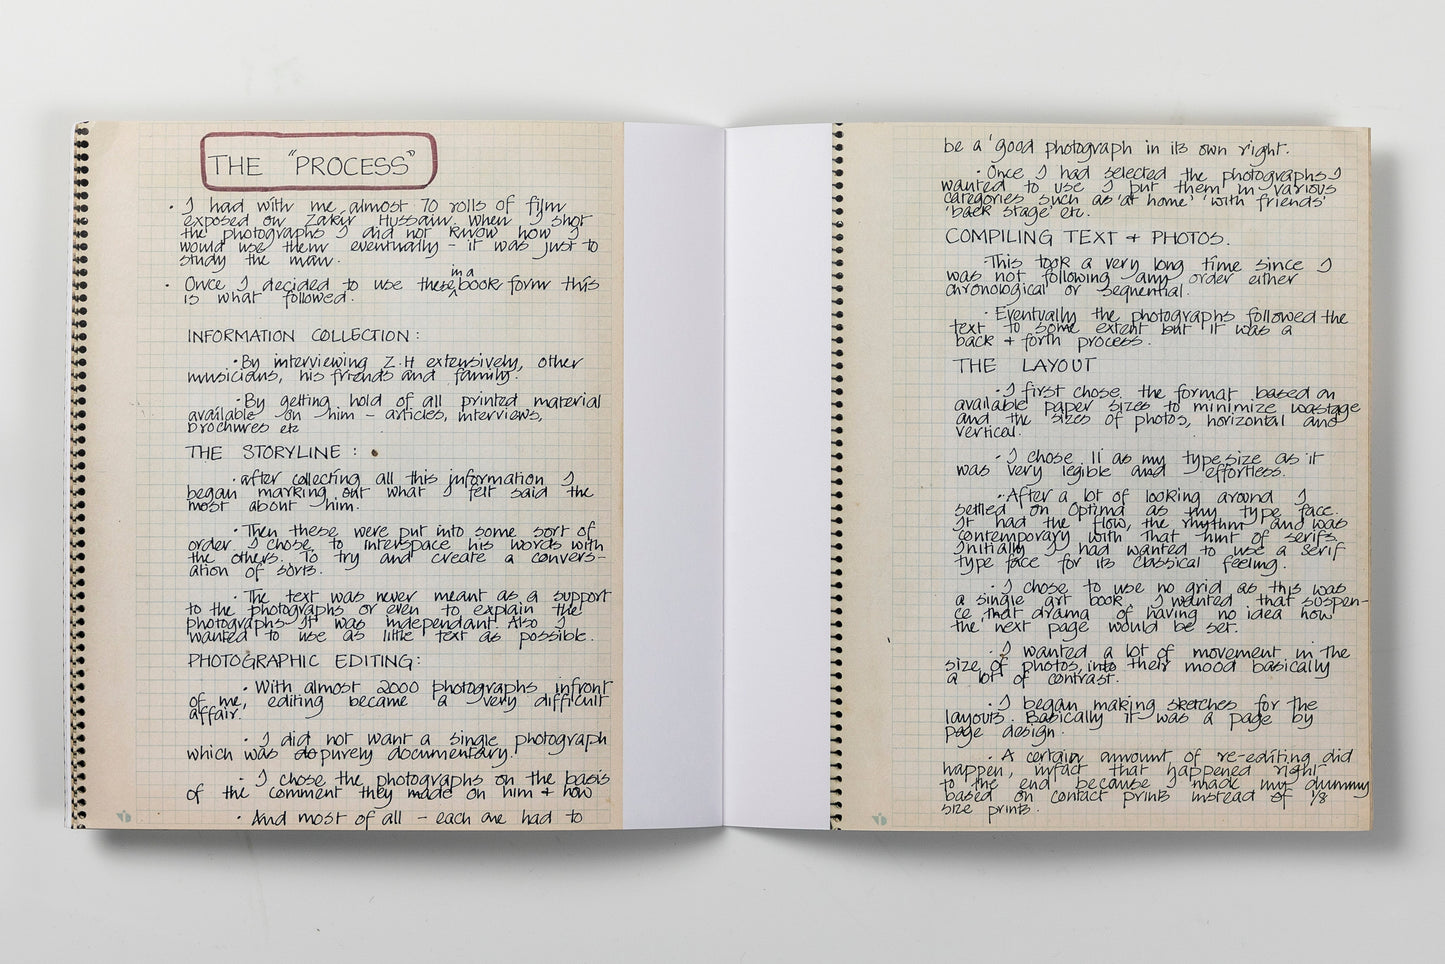 THE "PROCESS"
• I had with me almost 70 rolls of film
exposed on Zakir Hussain. When I shot
the photographs I did not know how I
would use them eventually - it was just to
study the man.
• Once I decided to use these in a book form this
is what followed.
INFORMATION COLLECTION:
• By interviewing Z.H extensively, other
musicians, his friends and family.
• By getting hold of all printed material
available on him - articles, interviews,
brochures etc
THE STORYLINE :
• after collecting all this information I
began marking out what I felt said the
most about him.
• Then these were put into some sort of
order. I chose to interspace his words with
the others. To try and create a convers-
ation of sorts.
• The text was never meant as a support
to the photographs or even to explain the
photographs. It was independant. Also I
wanted to use as little text as possible.
PHOTOGRAPHIC EDITING:
• With almost 2000 photographs infront
of me, editing became a very difficult
affair.
• I did not want a single photograph
which was purely documentary.
• I chose the photographs on the basis
of the comment they made on him + how
• And most of all - each one had to
be a 'good photograph in its own right.
• Once I had selected the photographs I
wanted to use I put them in various
categories such as 'at home' 'with friends'
'back stage' etc.
COMPILING TEXT + PHOTOS.
This took a very long time since I
was not following any order either
chronological or sequential.
• Eventually the photographs followed the
text to some extent but it was a
back + forth process.
THE LAYOUT
• I first chose the format based on
available paper sizes to minimize wastage
and the sizes of photos, horizontal and
vertical.
• I chose 11 as my type size as it
was very legible and effortless.
• After a lot of looking around I
settled on Optima as my type face.
It had the flow, the rhythm and was
contemporary with that hint of serifs.
Initially I had wanted to use a serif
type face for its classical feeling.
• I chose to use no grid as this was
a single art book. I wanted that suspen-
ce, that drama of having no idea how
the next page would be set.
• I wanted a lot of movement in the
size of photos, into their mood basically
a lot of contrast.
• I began making sketches for the
layouts. Basically it was a page by
page design.
• A certain amount of re-editing did
happen, infact that happened right
to the end because I made my dummy
based on contact prints instead of 1/8
size prints.